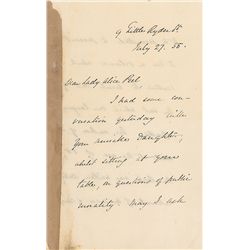 9 Little Ryder St.
July 27. 55.
Dear Lady Alice Peel
I had some con-
versation yesterday with
your daughter,
whilst sitting at your
table, on questions of public
morality. May I ask